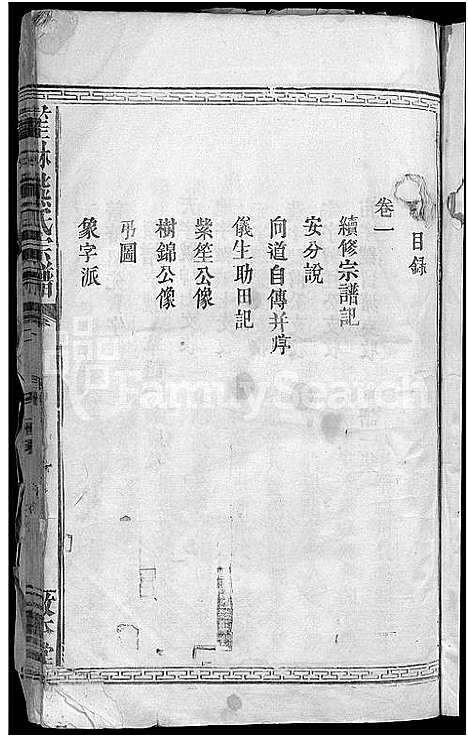 目錄
卷一
續修宗譜記
安分說
向道自傳并序
儀生助田記
紫笙公像
樹錦公像
弔圖
象字派
氏宗譜
FamilySearch